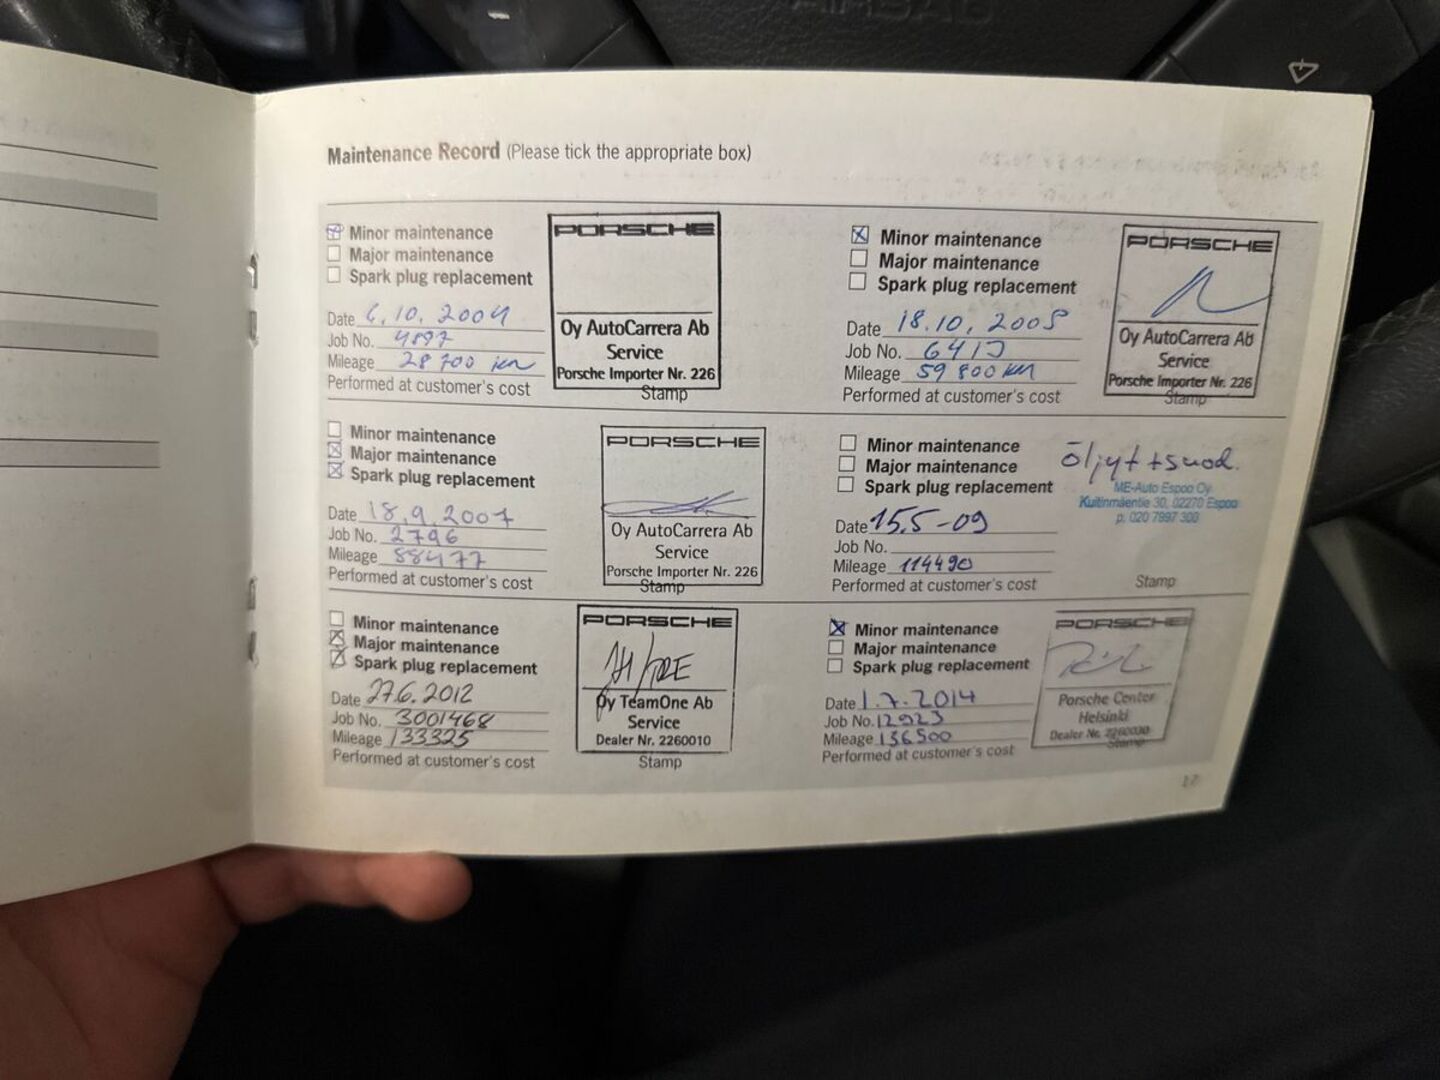 AIRBAG
Maintenance Record (Please tick the appropriate box)
Minor maintenance
Major maintenance
Spark plug replacement
Date 6.10.2004
Job No. 4897
Mileage 28 700 km
Performed at customer's cost
PORSCHE
Oy AutoCarrera Ab
Service
Porsche Importer Nr. 226
Stamp
Minor maintenance
Major maintenance
Spark plug replacement
Date 18.10, 2005
Job No.
Mileage 59 800 km
Performed at customer's cost
PORSCHE
Oy AutoCarrera Ab
Service
Porsche Importer Nr. 226
Stamp
Minor maintenance
Major maintenance
Spark plug replacement
Date 18.9.2007
Job No. 2796
Mileage 88477
Performed at customer's cost
PORSCHE
Oy AutoCarrera Ab
Service
Porsche Importer Nr. 226
Stamp
Minor maintenance
Major maintenance
Spark plug replacement
Date 15.5-09
Job No.
Mileage 114490
Performed at customer's cost
ME-Auto Espoo Oy
Kuitinmäentie 30, 02270 Espoo
p. 020 7997 300
Stamp
Minor maintenance
Major maintenance
Spark plug replacement
Date 27.6.2012
Job No. 3001468
Mileage 133325
Performed at customer's cost
PORSCHE
Oy TeamOne Ab
Service
Dealer Nr. 2260010
Stamp
Minor maintenance
Major maintenance
Spark plug replacement
Date 1.7.2014
Job No. 12923
Mileage 136500
Performed at customer's cost
PORSCHE
Porsche Center
Helsinki
Dealer Nr. 2260030
Stamp
17